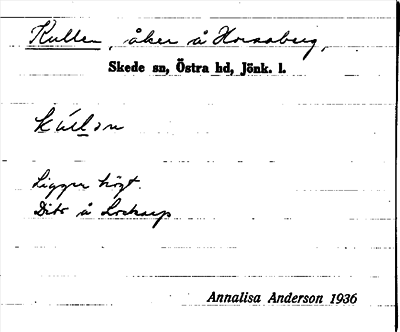 Kullen, åker å Horsaberg,
Skede sn, Östra hd, Jönk. l.
kúlən
Ligger högt.
Dito å
Annalisa Anderson 1936